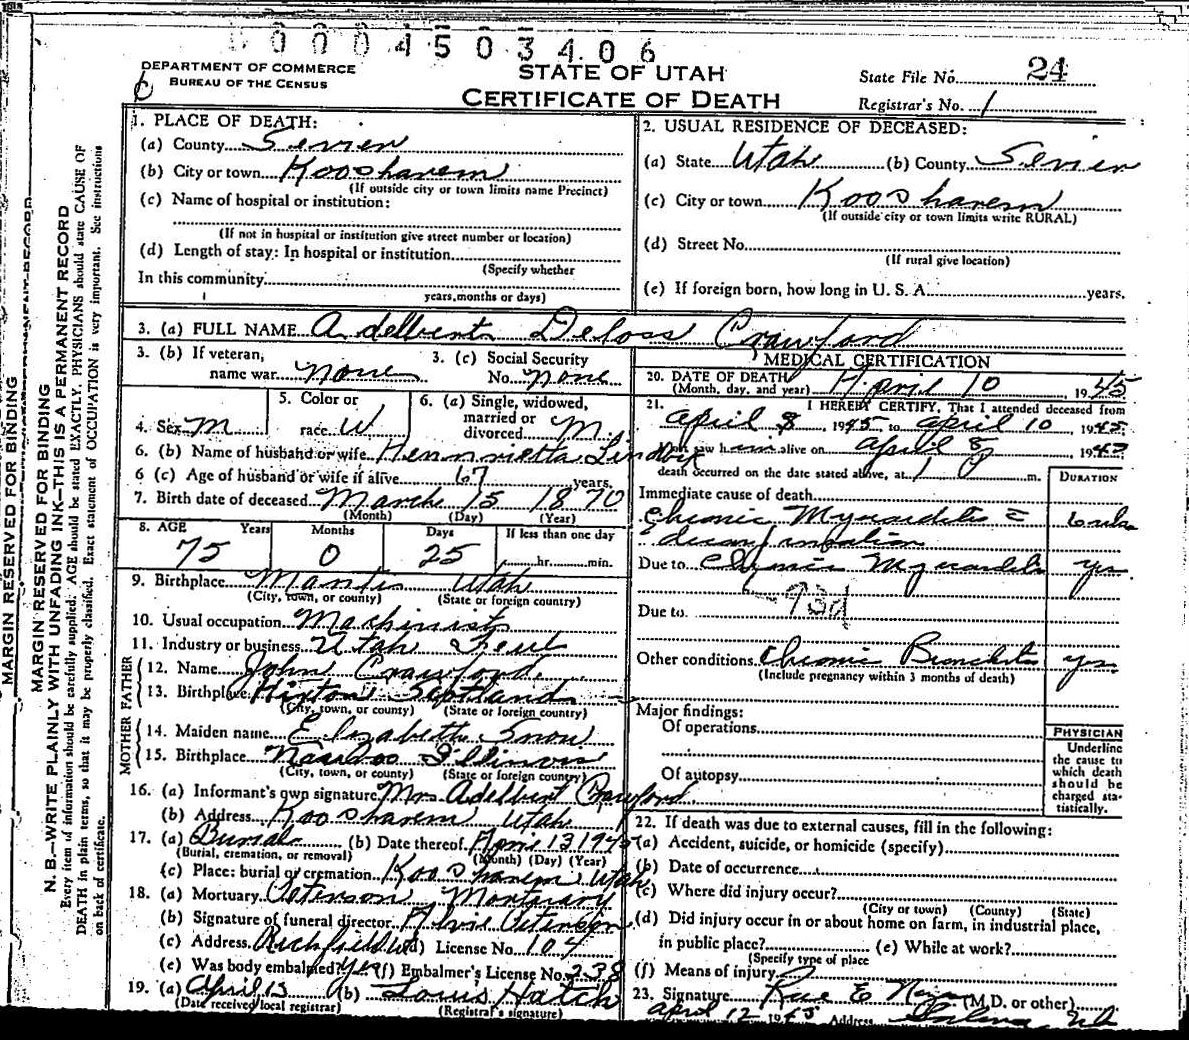 0004503406
DEPARTMENT OF COMMERCE
BUREAU OF THE CENSUS
STATE OF UTAH
CERTIFICATE OF DEATH
State File No. 24
Registrar's No. 1
MARGIN RESERVED FOR BINDING
MARGIN RESERVED FOR BINDING
N. B.—WRITE PLAINLY WITH UNFADING INK—THIS IS A PERMANENT RECORD
Every item of information should be carefully supplied. AGE should be stated EXACTLY. PHYSICIANS should state CAUSE OF
DEATH in plain terms, so that it may be properly classified. Exact statement of OCCUPATION is very important. See instructions
on back of certificate.
1. PLACE OF DEATH:
(a) County Sevier
(b) City or town Koosharem
(If outside city or town limits name Precinct)
(c) Name of hospital or institution:
(If not in hospital or institution give street number or location)
(d) Length of stay: In hospital or institution
(Specify whether
In this community
years, months or days)
2. USUAL RESIDENCE OF DECEASED:
(a) State Utah (b) County Sevier
(c) City or town Koosharem
(If outside city or town limits write RURAL)
(d) Street No.
(If rural give location)
(e) If foreign born, how long in U. S. A. years.
3. (a) FULL NAME Adelbert Deloss Crawford
3. (b) If veteran, name war none
3. (c) Social Security No. none
4. Sex M
5. Color or race W
6. (a) Single, widowed, married or divorced M.
6. (b) Name of husband or wife Hennrietta
6 (c) Age of husband or wife if alive 67 years.
7. Birth date of deceased March 15 1870
(Month) (Day) (Year)
8. AGE Years Months Days If less than one day
75 0 25 hr. min.
9. Birthplace Manti Utah
(City, town, or county) (State or foreign country)
10. Usual occupation Machinist
11. Industry or business Utah
FATHER
12. Name John Crawford
13. Birthplace Scotland
(City, town, or county) (State or foreign country)
MOTHER
14. Maiden name Elizabeth Snow
15. Birthplace Nauvoo Illinois
(City, town, or county) (State or foreign country)
16. (a) Informant's own signature Mrs Adelbert Crawford
(b) Address Koosharem Utah
17. (a) Burial (b) Date thereof April 13 1945
(Burial, cremation, or removal) (Month) (Day) (Year)
(c) Place: burial or cremation Koosharem Utah
18. (a) Mortuary Peterson Mortuary
(b) Signature of funeral director Alvie Peterson
(c) Address Richfield (d) License No. 104
(e) Was body embalmed? Yes (f) Embalmer's License No. 238
19. (a) April 13 (b) Louis Hatch
(Date received local registrar) (Registrar's signature)
MEDICAL CERTIFICATION
20. DATE OF DEATH April 10 1945
(Month, day, and year)
21. I HEREBY CERTIFY, That I attended deceased from
April 8, 1945 to April 10 1945
last saw him alive on April 8 1945
death occurred on the date stated above, at 1 P m.
DURATION
Immediate cause of death
Chronic Myocarditis
decompensation
Due to Chronic Myocarditis yrs
93d
Due to
Other conditions Chronic Bronchitis yrs
(Include pregnancy within 3 months of death)
Major findings:
Of operations
Of autopsy
PHYSICIAN
Underline
the cause to
which death
should be
charged sta-
tistically.
22. If death was due to external causes, fill in the following:
(a) Accident, suicide, or homicide (specify)
(b) Date of occurrence
(c) Where did injury occur?
(City or town) (County) (State)
(d) Did injury occur in or about home on farm, in industrial place,
in public place? (e) While at work?
(Specify type of place
(f) Means of injury
23. Signature Rae E (M.D. or other)
April 12 1945 Address Salina, Ut